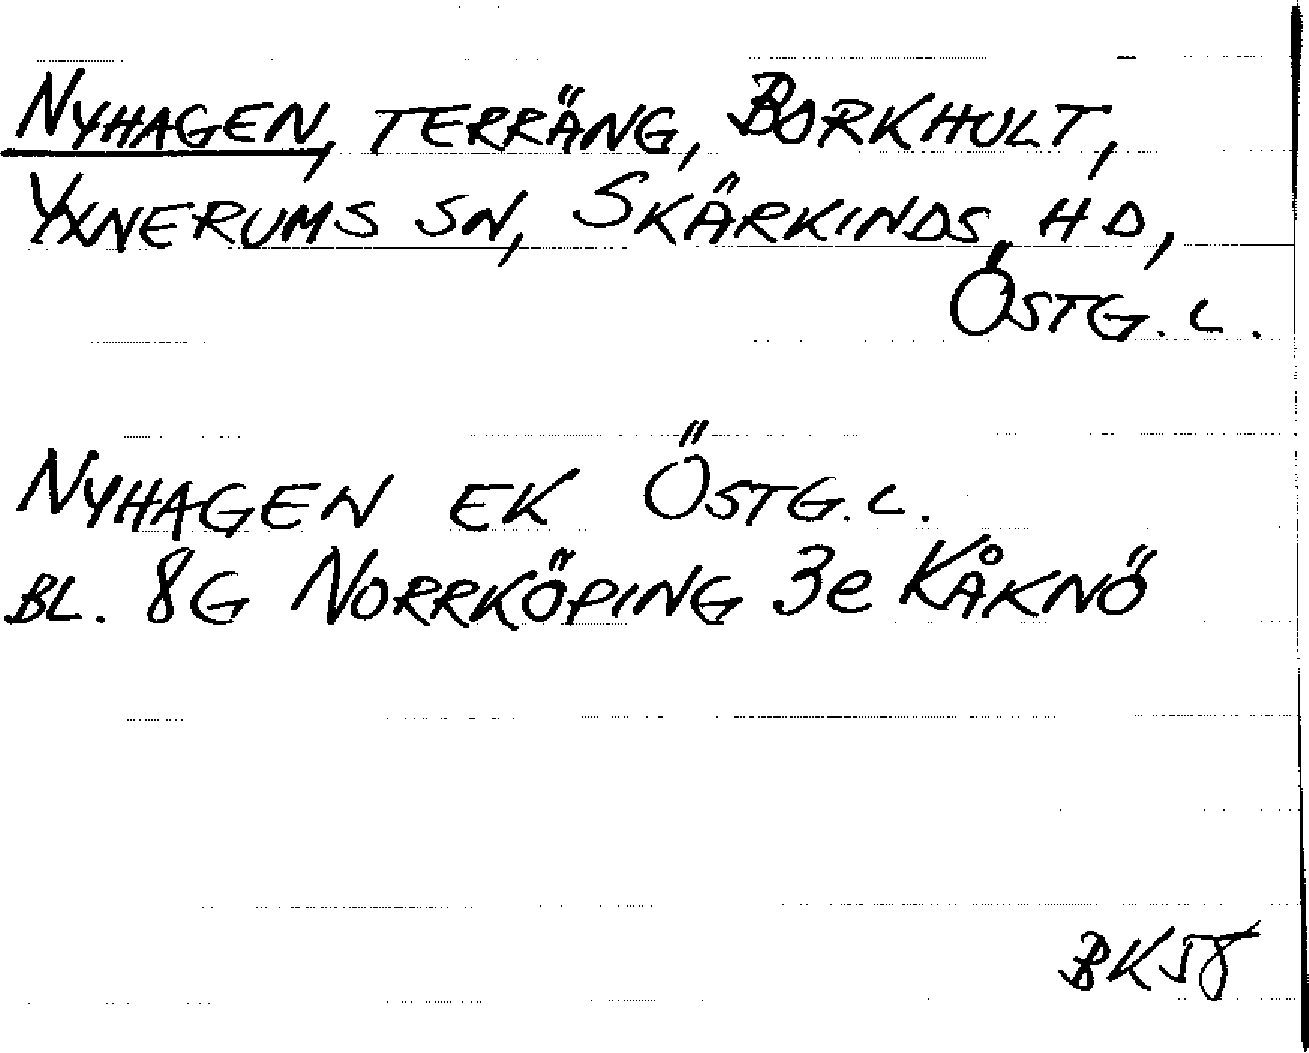 NYHAGEN, TERRÄNG, BORKHULT,
YXNERUMS SN, SKÄRKINDS HD,
ÖSTG. L.
NYHAGEN EK ÖSTG. L.
BL. 8G NORRKÖPING 3e KÅKNÖ
BK58